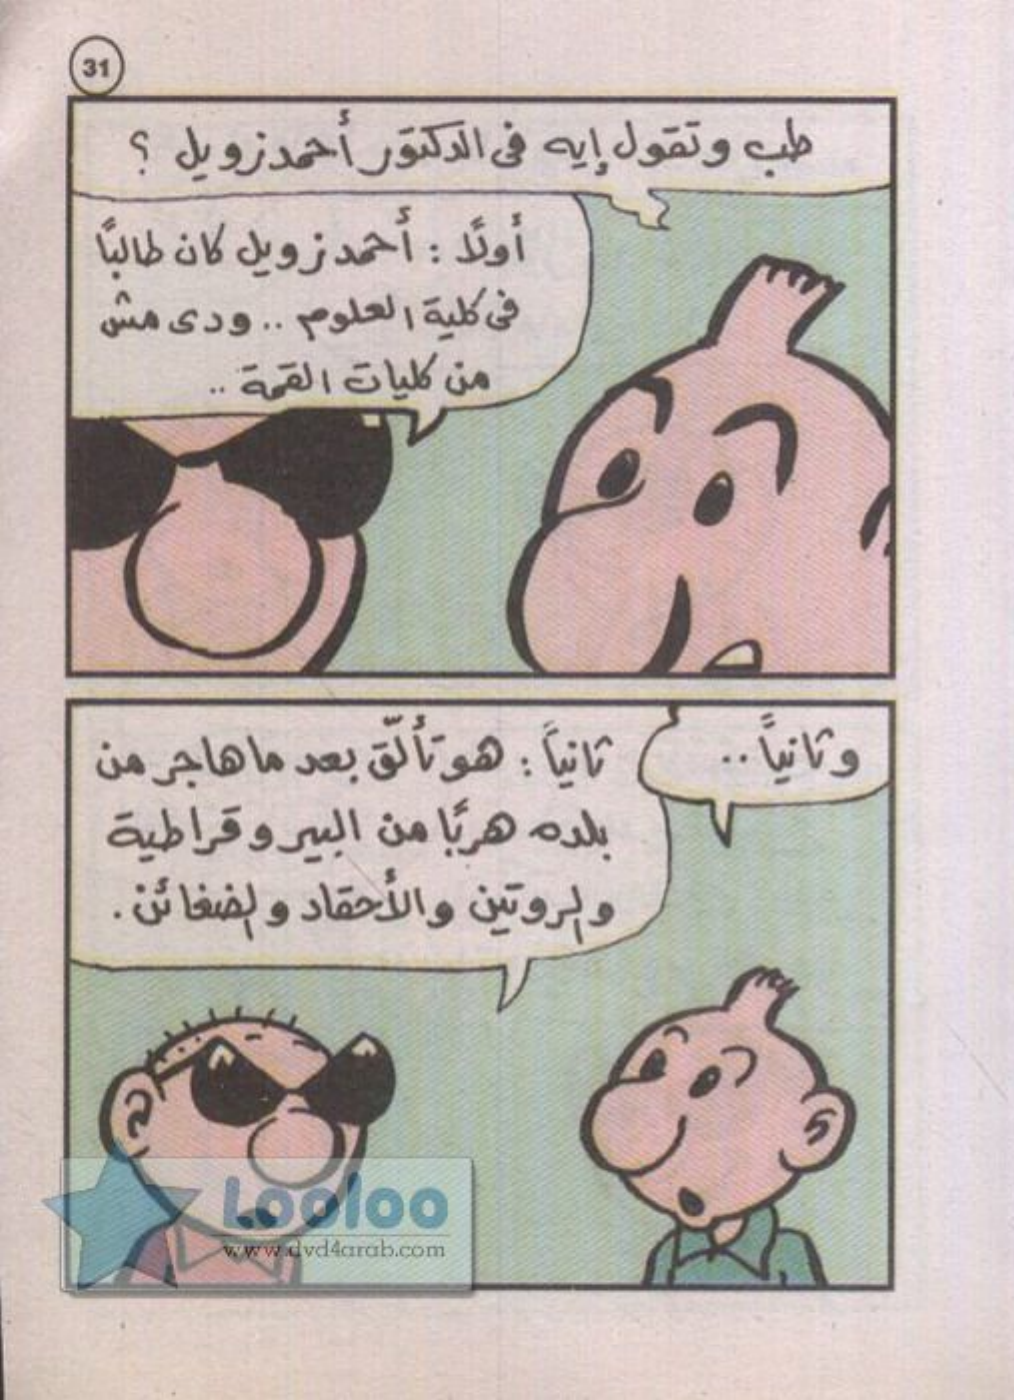 31
طب وتقول إيه فى الدكتور أحمد زويل ؟
أولًا : أحمد زويل كان طالبًا
فى كلية العلوم .. ودى مش
من كليات القمة ..
وثانياً ..
ثانياً : هو تألّق بعد ما هاجر من
بلده هربًا من البيروقراطية
والروتين والأحقاد والضغائن .
Looloo
www.dvd4arab.com